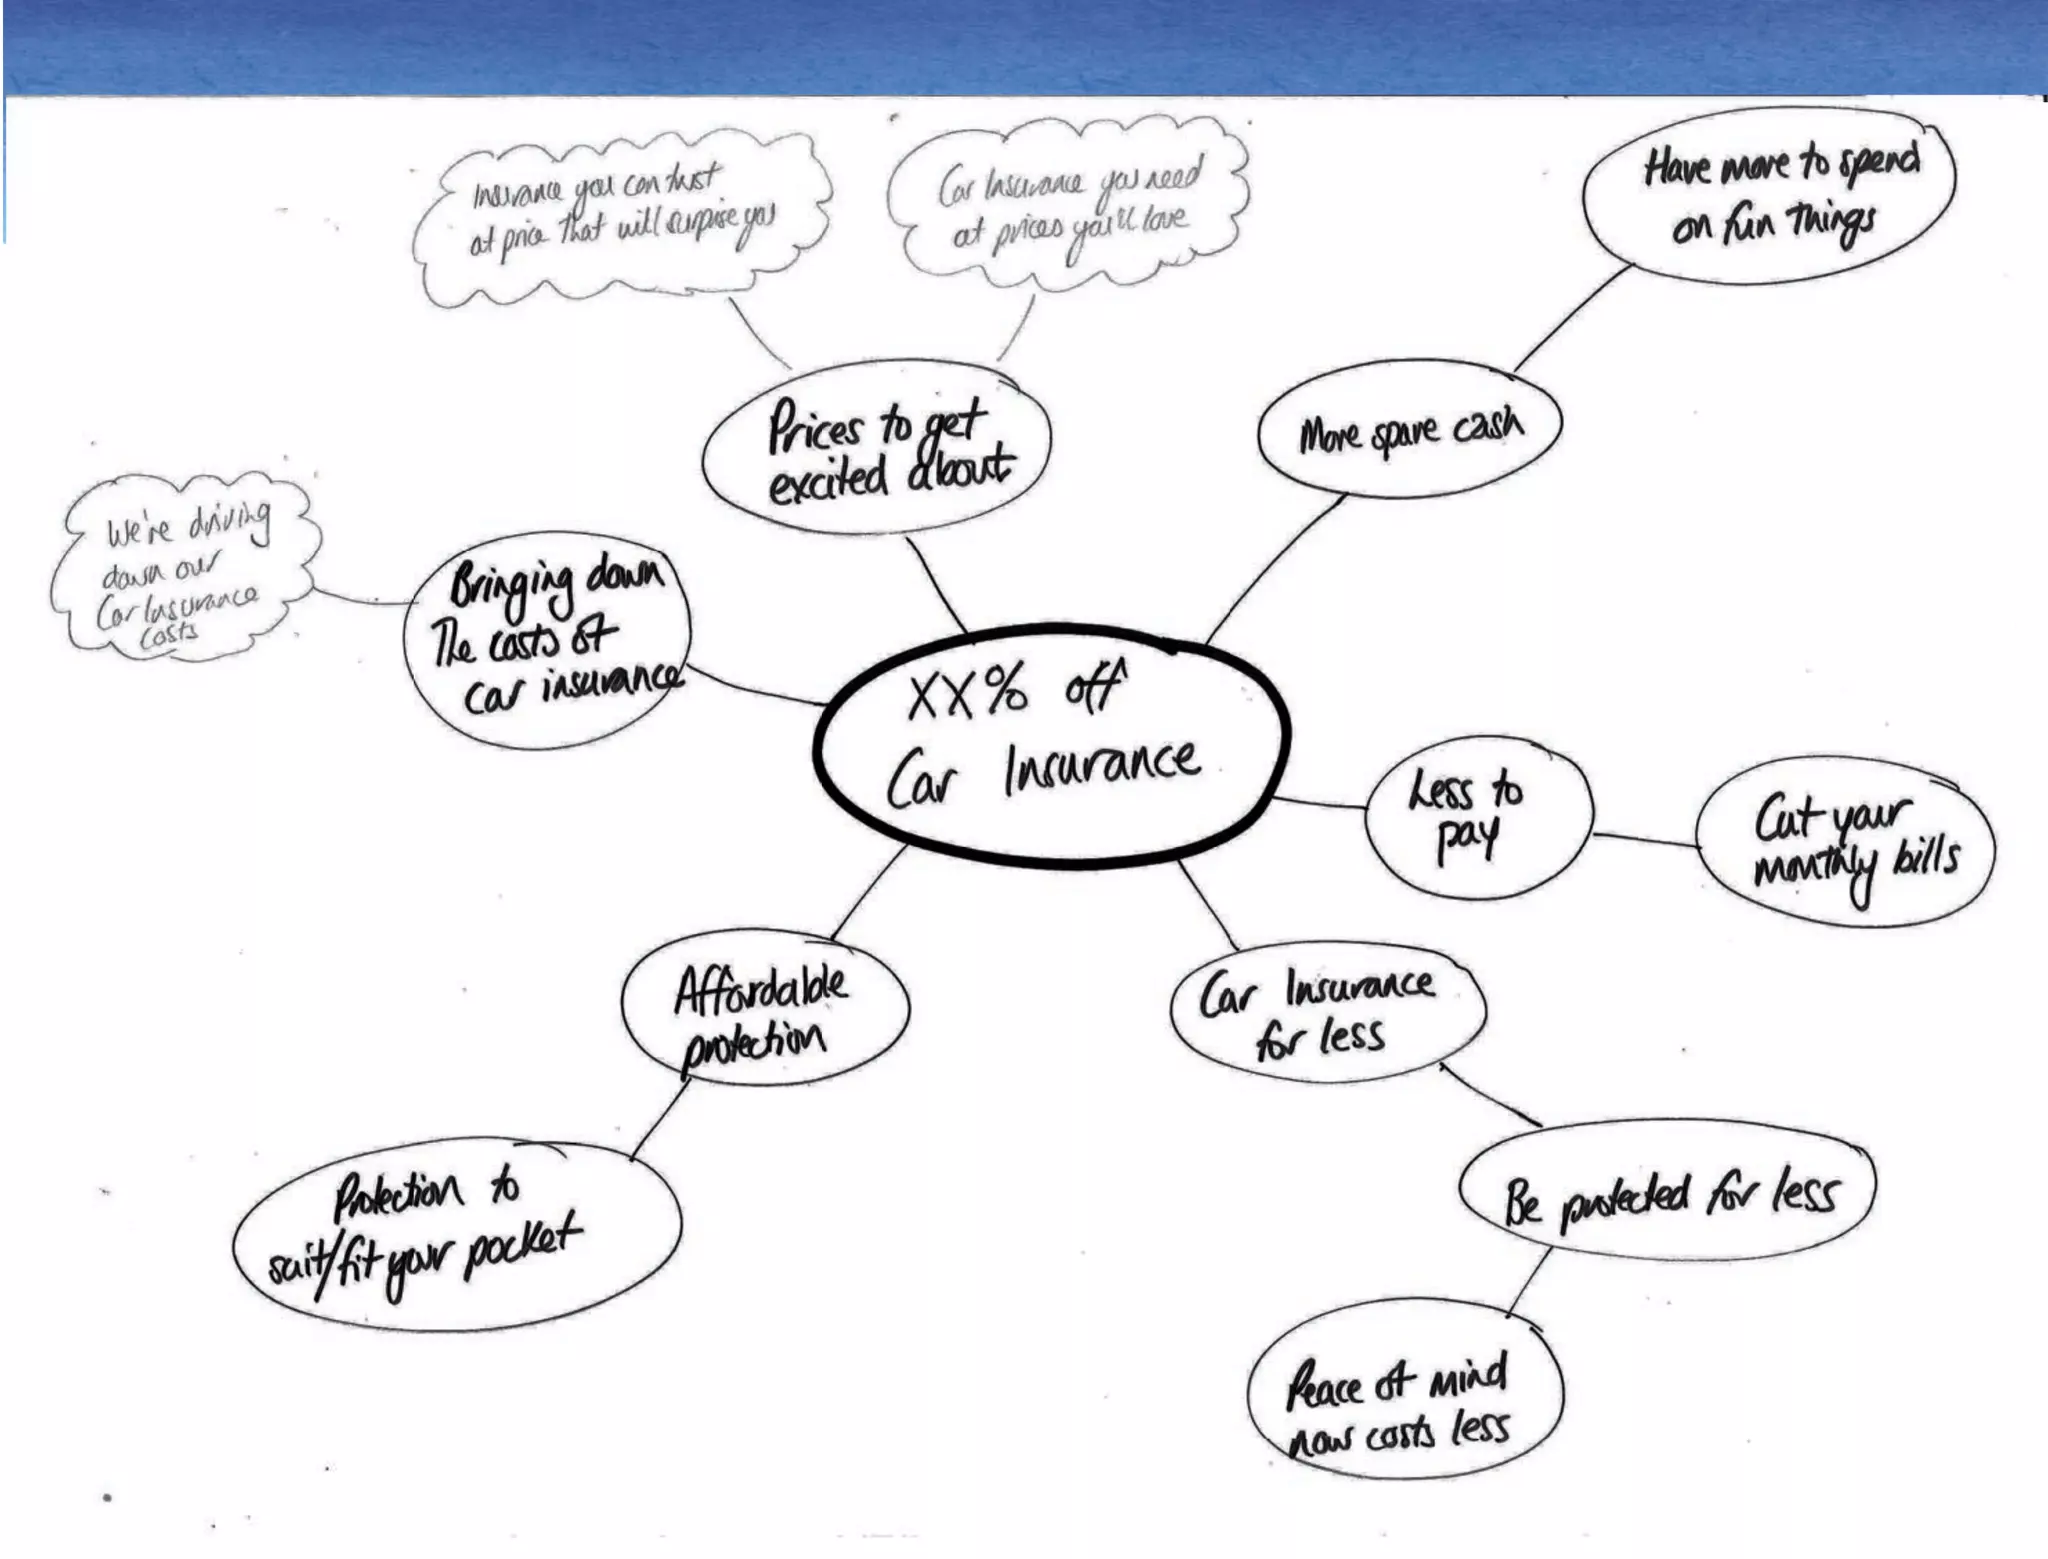 Insurance you can trust
at price that will surprise you
Car Insurance you need
at prices you'll love
Have more to spend
on fun things
Prices to get
excited about
More spare cash
We're driving
down our
Car Insurance
costs
Bringing down
The costs of
car insurance
XX% off
Car Insurance
Less to
pay
Cut your
monthly bills
Affordable
protection
Car Insurance
for less
Protection to
suit/fit your pocket
Be protected for less
Peace of mind
now costs less